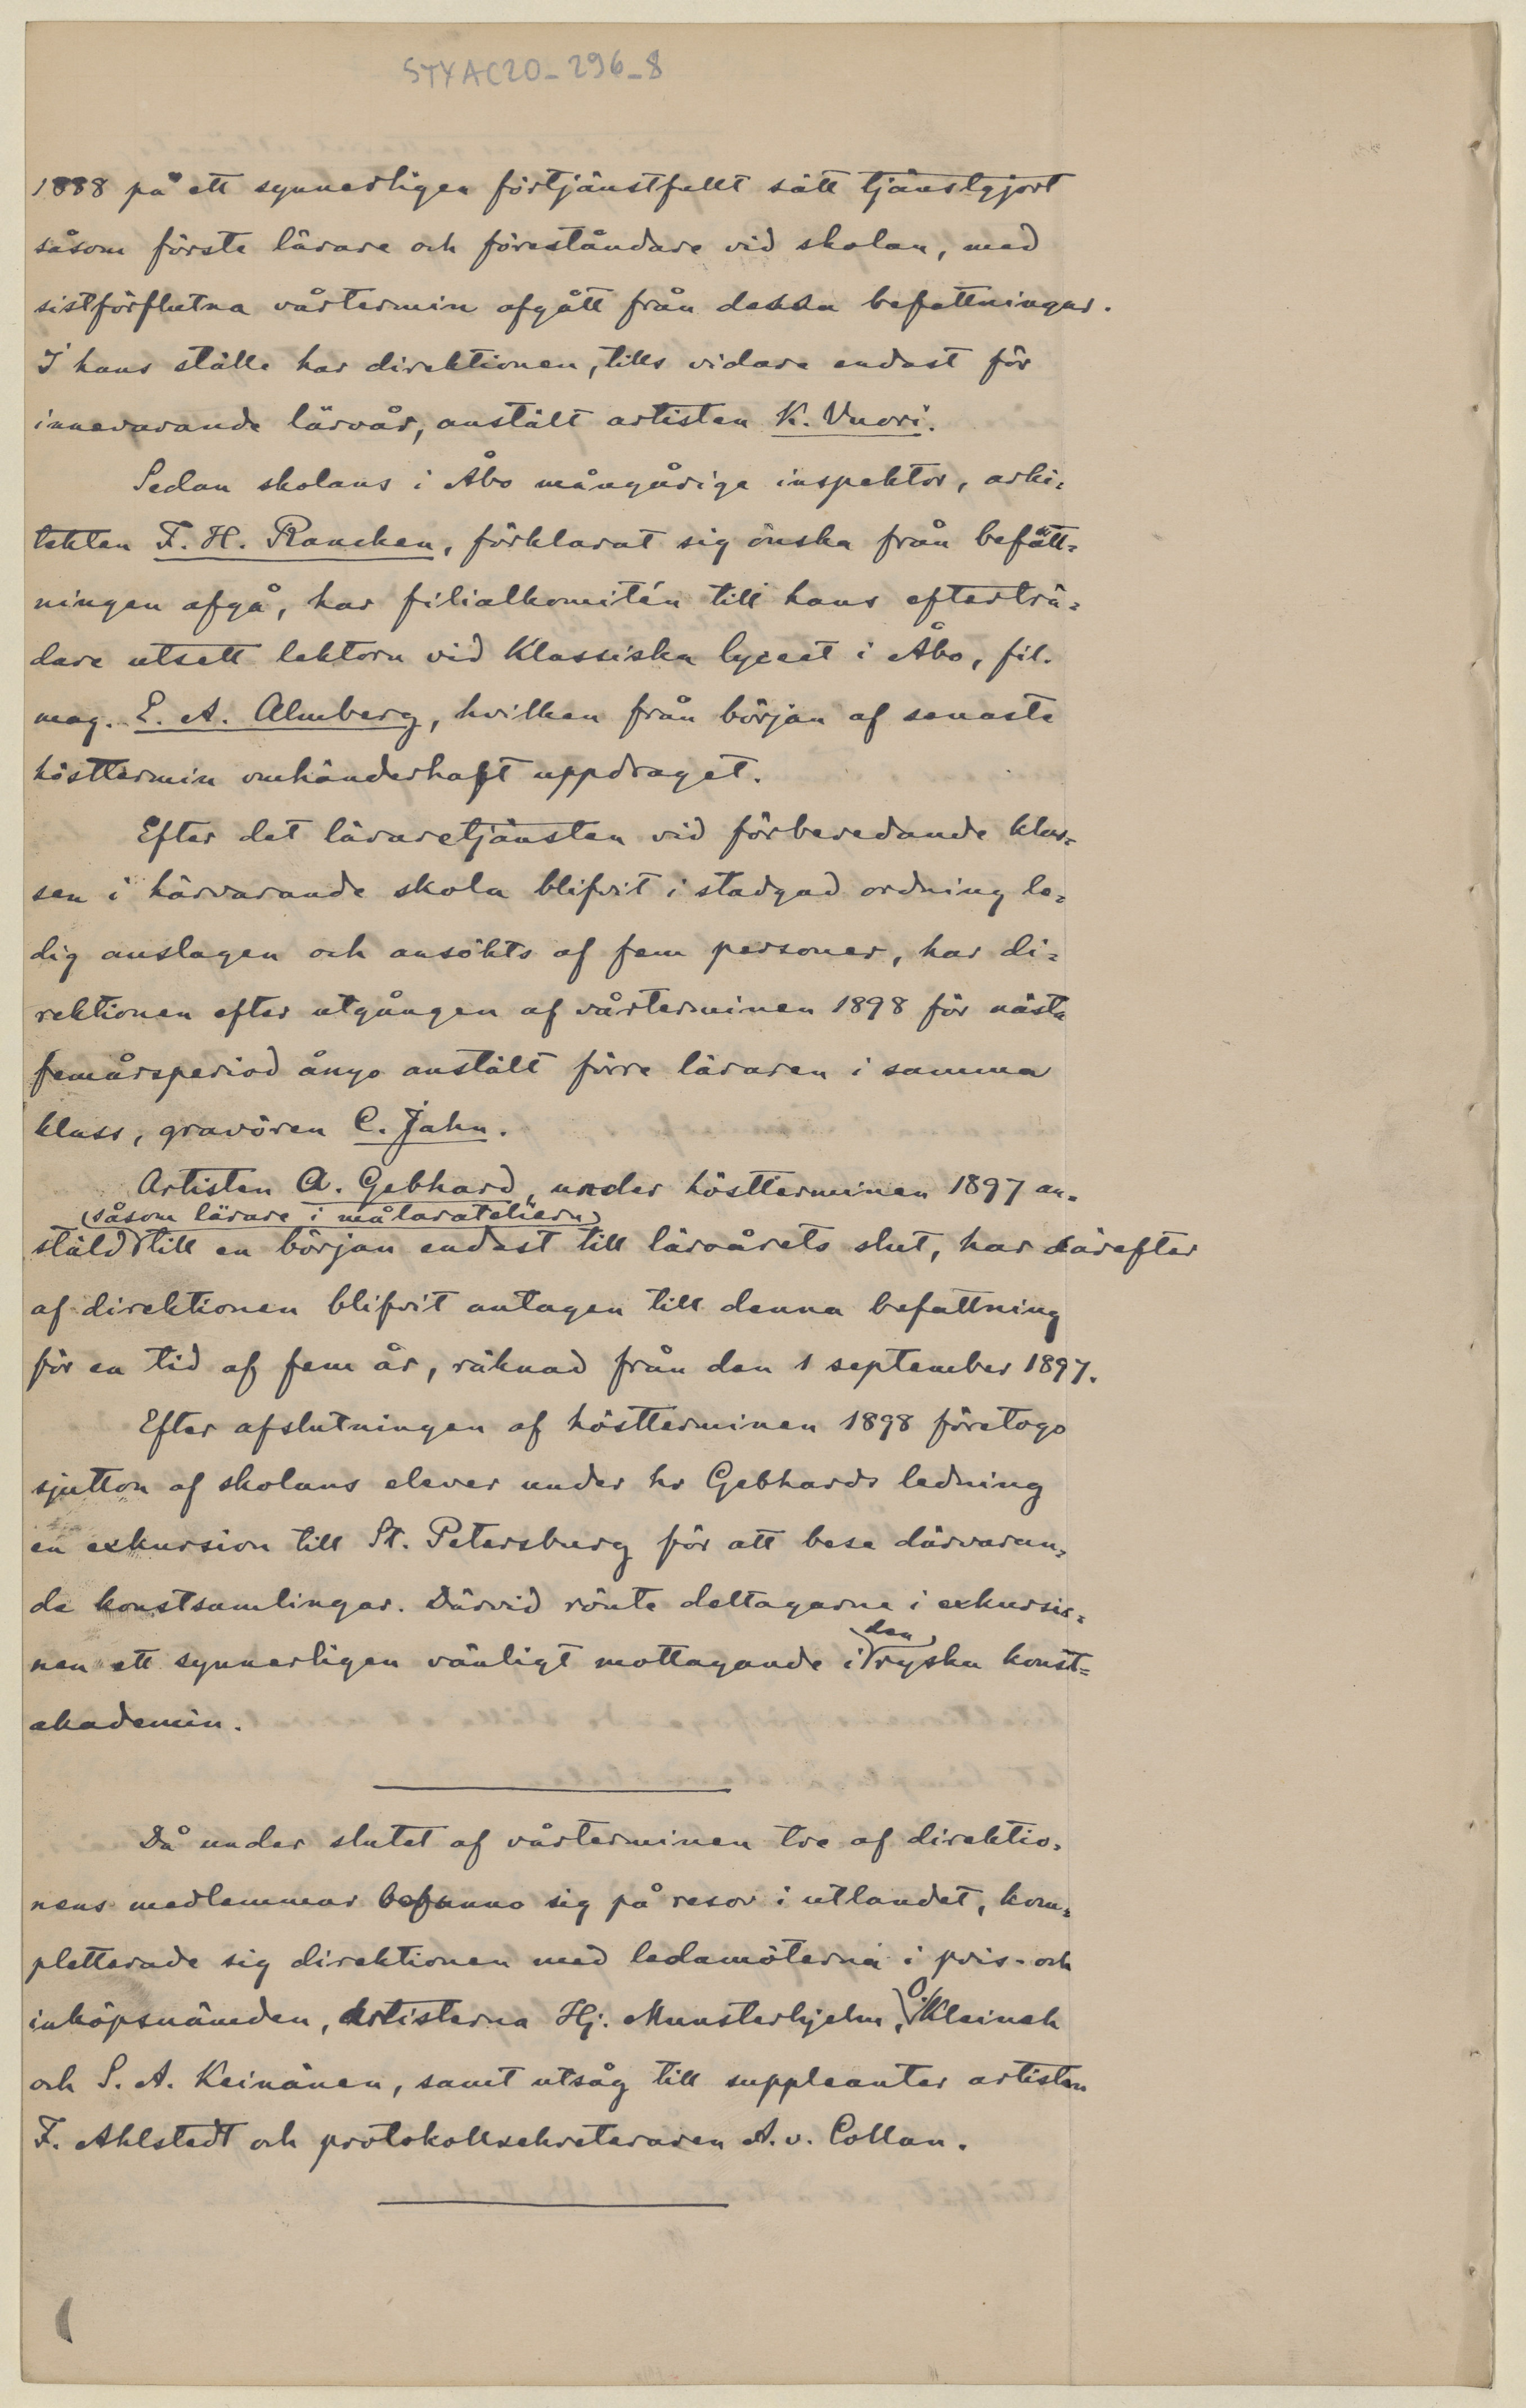 STYAC20-296-8
1888 på ett synnerligen förtjänstfullt sätt tjänstgjort
såsom förste lärare och föreståndare vid skolan, med
sistförflutna vårtermin afgått från dessa befattningar.
I hans ställe har direktionen, tills vidare endast för
innevarande läroår, anstält artisten K. Vuori.
Sedan skolans i Åbo mångårige inspektor, arki-
tekten F. H. Rancken, förklarat sig önska från befatt=
ningen afgå, har filialkomitén till hans efterträ=
dare utsett lektorn vid Klassiska lyceet i Åbo, fil.
mag. E. A. Almberg, hvilken från början af senaste
hösttermin omhänderhaft uppdraget.
Efter det läraretjänsten vid förberedande klas=
sen i härvarande skola blifvit i stadgad ordning le=
dig anslagen och ansökts af fem personer, har di=
rektionen efter utgången af vårterminen 1898 för nästa
femårsperiod ånyo anstält förre läraren i samma
klass, gravören C. Jahn.
Artisten A. Gebhard, under höstterminen 1897 an=
(såsom lärare i målarateliern)
stäld till en början endast till läroårets slut, har därefter
af direktionen blifvit antagen till denna befattning
för en tid af fem år, räknad från den 1 september 1897.
Efter afslutningen af höstterminen 1898 företogo
sjutton af skolans elever under hr Gebhards ledning
en exkursion till St. Petersburg för att bese därvaran=
de konstsamlingar. Därvid rönte deltagarne i exkursio=
den
nen ett synnerligen vänligt mottagande i ryska konst=
akademin.
Då under slutet af vårterminen tre af direktio-
nens medlemmar befunno sig på resor i utlandet, kom=
pletterade sig direktionen med ledamöterna i pris- och
O.
inköpsnämden, artisterna Hj. Munsterhjelm, Kleineh
och S. A. Keinänen, samt utsåg till suppleanter artisten
F. Ahlstedt och protokollsekreteraren A. v. Collan.